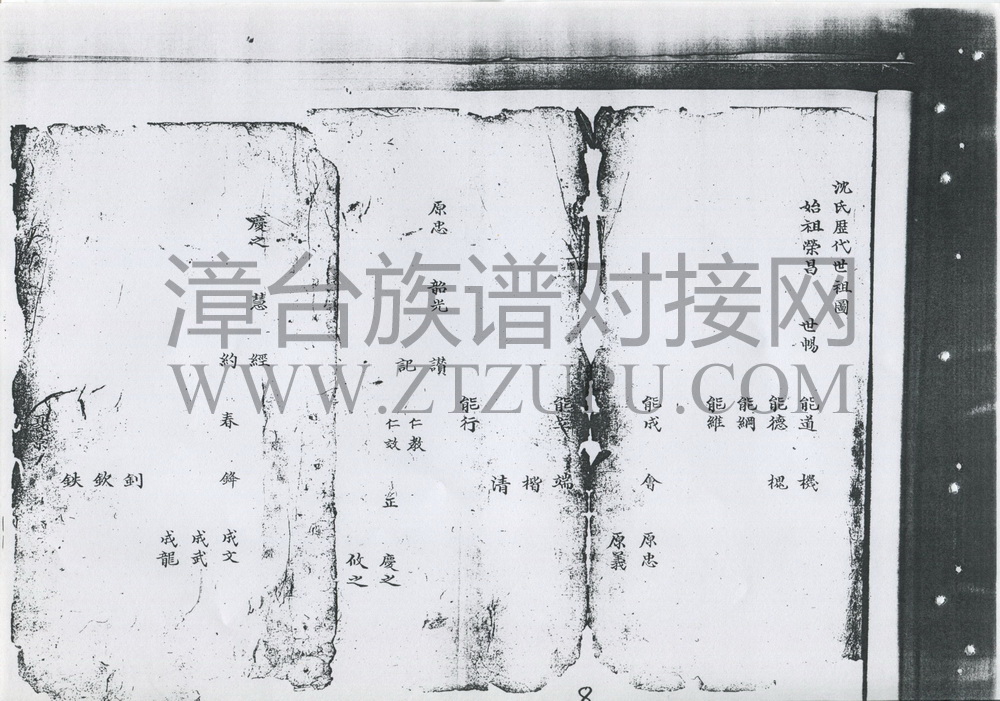 沈氏歷代世祖圖
始祖榮昌 世暢
能道 機
能德 槐
能綱
能維
能成 會 原忠
原義
端
楷
能行 清
原忠 韶光 讚 仁教
記 仁效 正 慶之
攸之
慶之 慧 經
約 春 鋒 成文
成武
成龍
釗
欽
鉄
漳台族谱对接网
WWW.ZTZUPU.COM
8